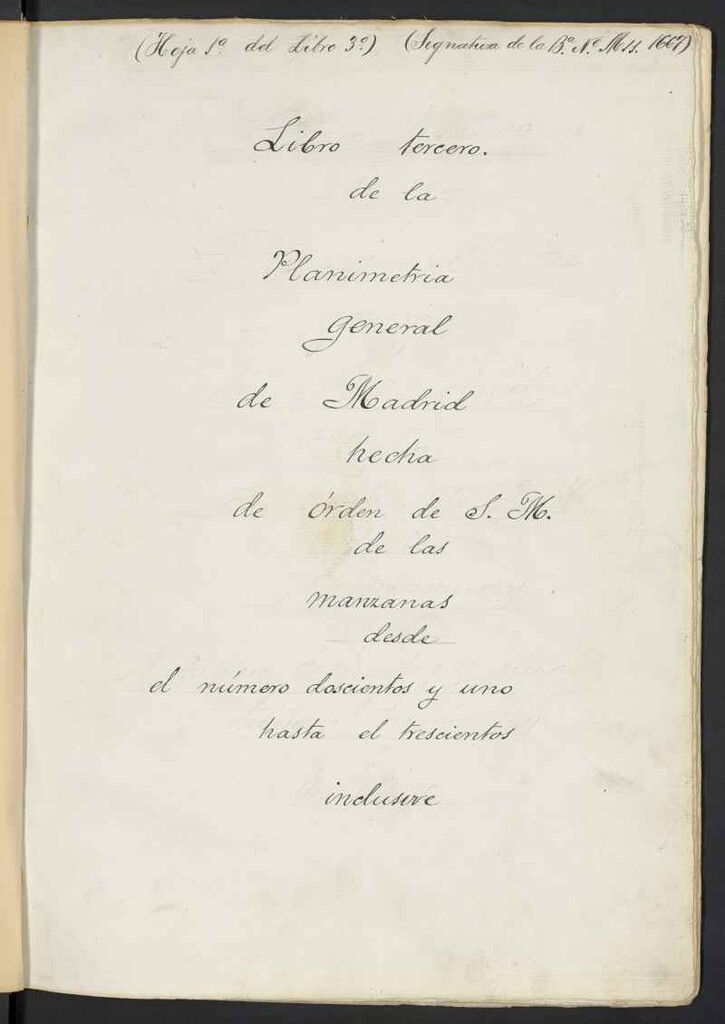 (Hoja 1ª del Libro 3º) (Signatura de la Bª Nª Mss. 1667)
Libro tercero.
de la
Planimetria
general
de Madrid
hecha
de órden de S. M.
de las
manzanas
desde
el número doscientos y uno
hasta el trescientos
inclusive